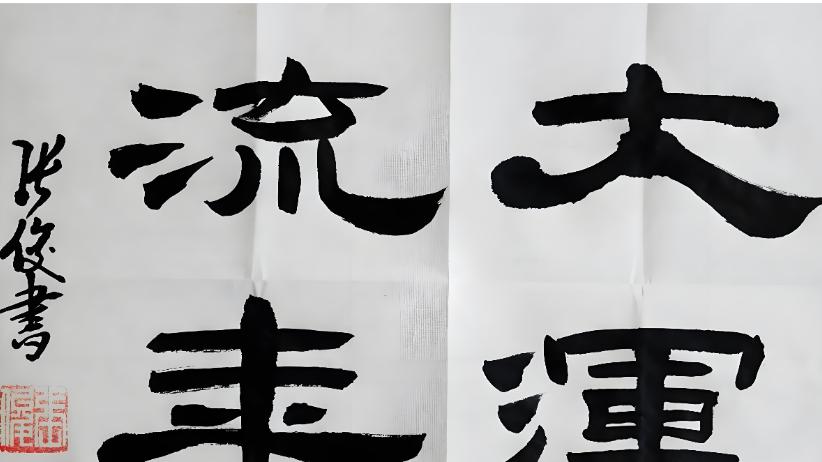 大運
流年
张俊書